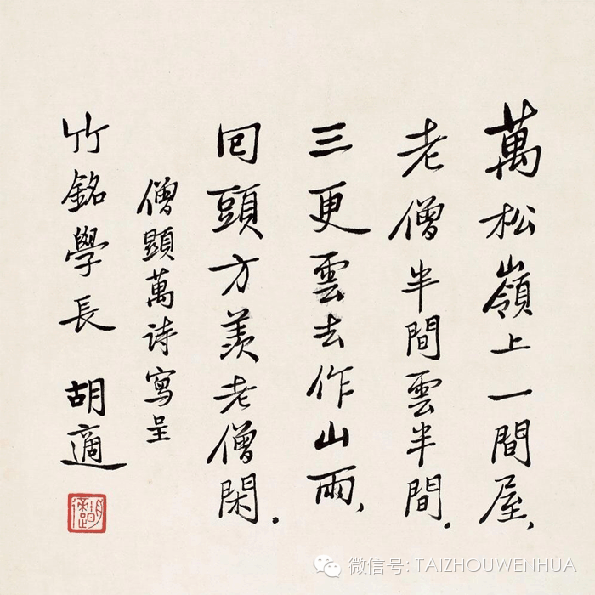 萬松嶺上一間屋、
老僧半間雲半間．
三更雲去作山雨、
回頭方羨老僧閑．
僧顯萬詩寫呈
竹銘學長 胡適
微信号: TAIZHOUWENHUA